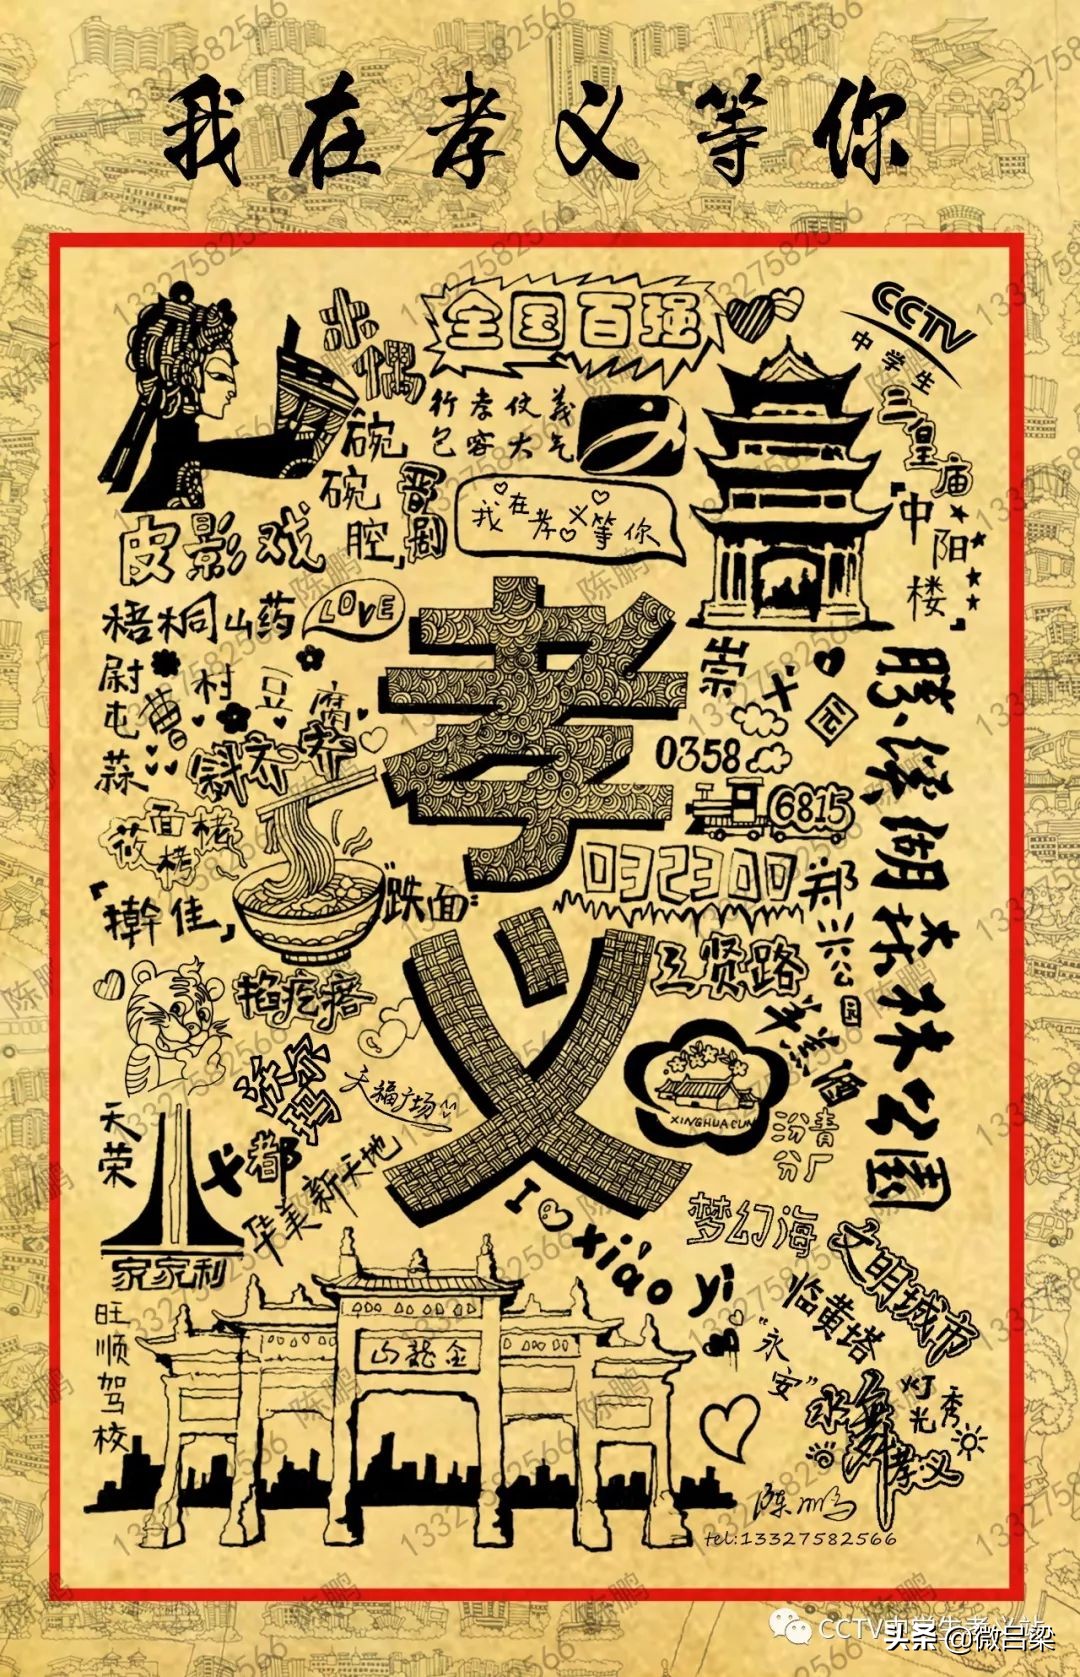 我在孝义等你
全国百强
CCTV
中学生
木偶
行孝仗義
包容大气
三皇庙
碗碗腔
晋剧
我在孝义等你
「中阳楼」
皮影戏
梧桐山药
LOVE
尉屯蒜
曹村豆腐
崇文
0358
6815
032300
胜溪湖森林公园
莜面栲栳
"跌面"
「擀佳」
郑兴公园
三贤路
掐疙瘩
沃尔玛
天福广场
XINGHUACUN
汾青
分厂
天荣
义都
华美新天地
I xiào yì
梦幻海
文明城市
家家利
旺顺驾校
临黄塔
金龍山
"永安"
灯光秀
陈鹏
tel:13327582566
陈鹏
13327582566
CCTV中学生孝义站
头条 @微吕梁